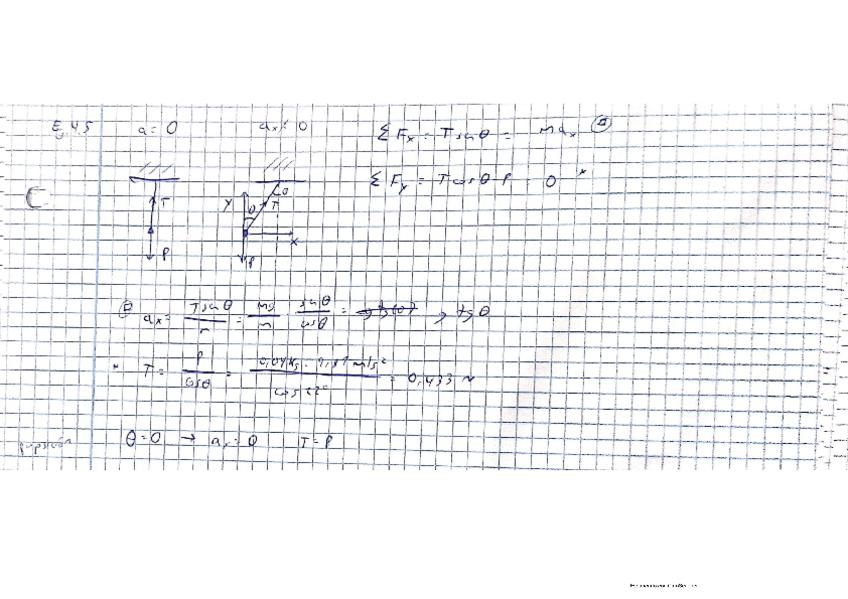 Ej 4.5 a = 0 ax ≠ 0 ΣFx = T senθ = max
ΣFy = T cosθ - P = 0 *
T θ
y θ T
x
P P
ax = T senθ / m = mg / m senθ / cosθ = g tg θ
* T = P / cosθ = 0,04 kg · 9,81 m/s² / cos 22° = 0,433 N
θ = 0 → ax = 0 T = P